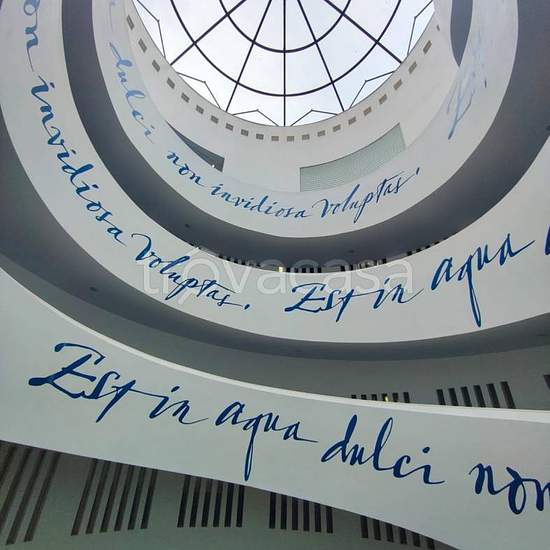 dulci non invidiosa voluptas.
non invidiosa voluptas. Est in aqua
trovacasa
Est in aqua dulci non